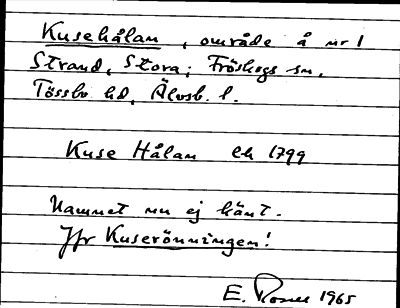 Kusehålan, område å nr 1
Strand, Stora; Fröskogs sn,
Tössbo hd, Älvsb. l.
Kuse Hålan lh 1799
Namnet nu ej känt.
Jfr Kuserönningen!
E. 1965